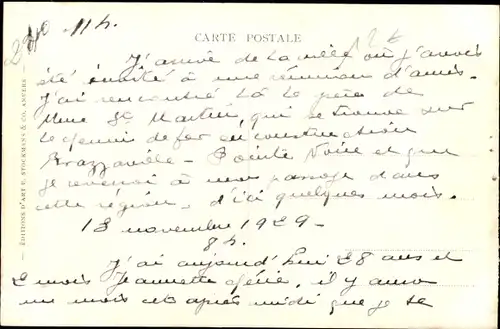 11h.
CARTE POSTALE
J'arrive de la ville où j'avais
été invité à une réunion d'amis.
J'ai rencontré là le père de
Mme St Martin, qui se trouve sur
le chemin de fer en construction
Brazzaville - Pointe Noire et que
je reverrai à mon passage dans
cette région, d'ici quelques mois.
13 novembre 1929 -
8h.
J'ai aujourd'hui 28 ans et
2 mois Jeannette chérie, il y aura
un mois cet après midi que je se
— ÉDITIONS D'ART E. STOCKMANS & CO., ANVERS